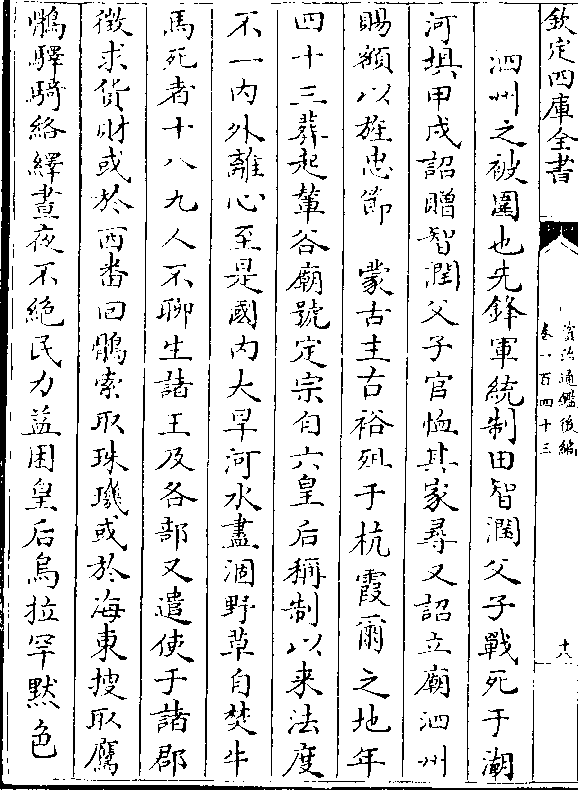 欽定四庫全書
資治通鑑後編
卷一百四十三
十八
泗州之被圍也先鋒軍統制田智潤父子戰死于潮
河壩甲戌詔贈智潤父子官恤其家尋又詔立廟泗州
賜額以旌忠節　蒙古主古裕殂于杭霞爾之地年
四十三葬起輦谷廟號定宗自六皇后稱制以來法度
不一内外離心至是國内大旱河水盡涸野草自焚牛
馬死者十八九人不聊生諸王及各部又遣使于諸郡
徵求貨財或於西畨回鶻索取珠璣或於海東捜取鷹
鶻驛騎絡繹晝夜不絶民力益困皇后烏拉罕黙色